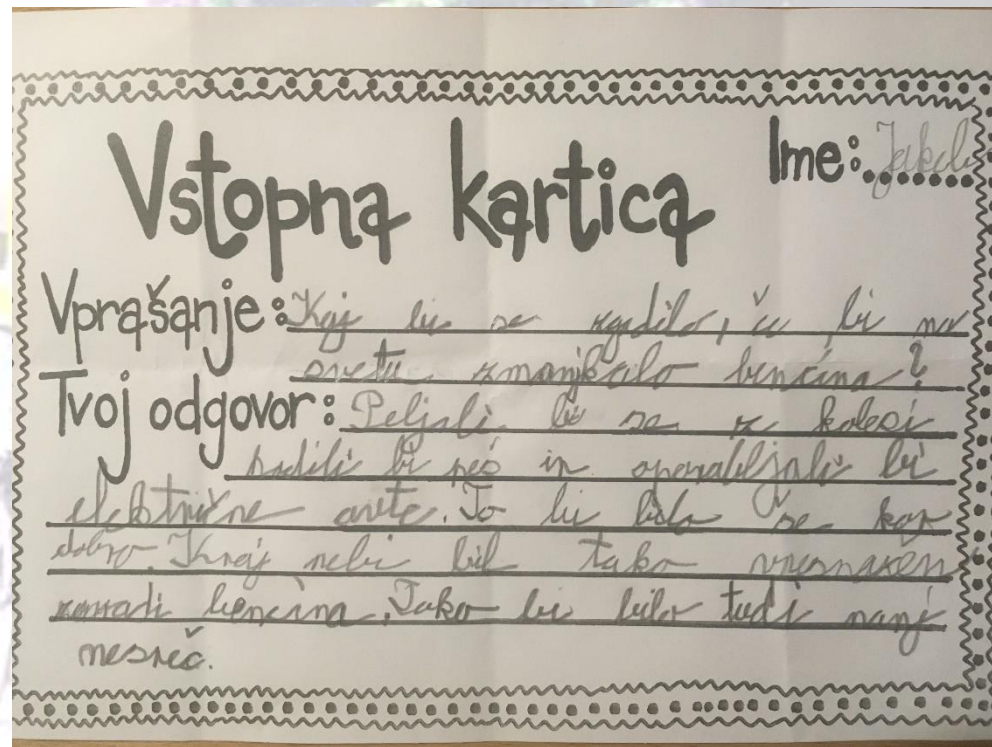 Vstopna kartica
Ime: Jakob
Vprašanje: Kaj bi se zgodilo, če bi na
svetu zmanjkalo bencina?
Tvoj odgovor: Peljali bi se s kolesi
hodili bi peš in uporabljali bi
električne avte. To bi bilo še kar
dobro. Kraj nebi bil tako onesnažen
zaradi bencina. Tako bi bilo tudi manj
nesreč.